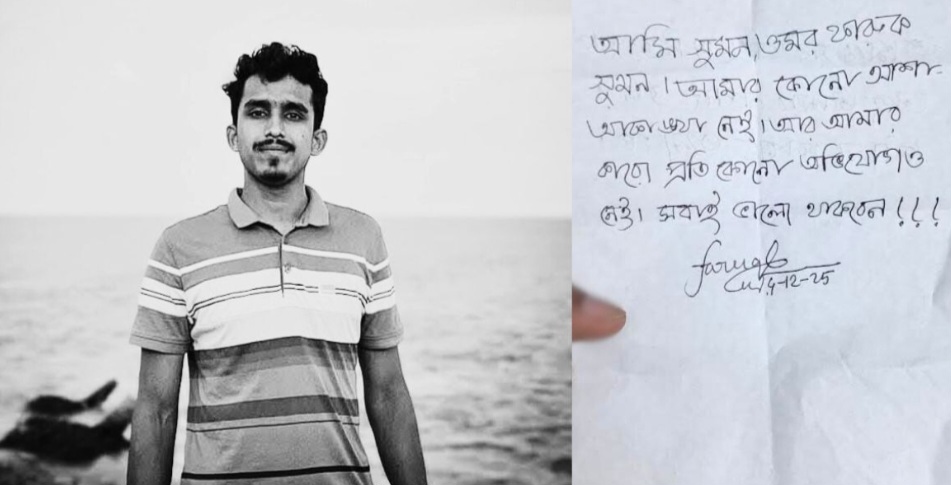 আমি সুমন, ওমর ফারুক
সুমন। আমার কোনো আশা-
আকাঙ্খা নেই। আর আমার
কারো প্রতি কোনো অভিযোগও
নেই। সবাই ভালো থাকবেন!!!
faruqb
14-12-25